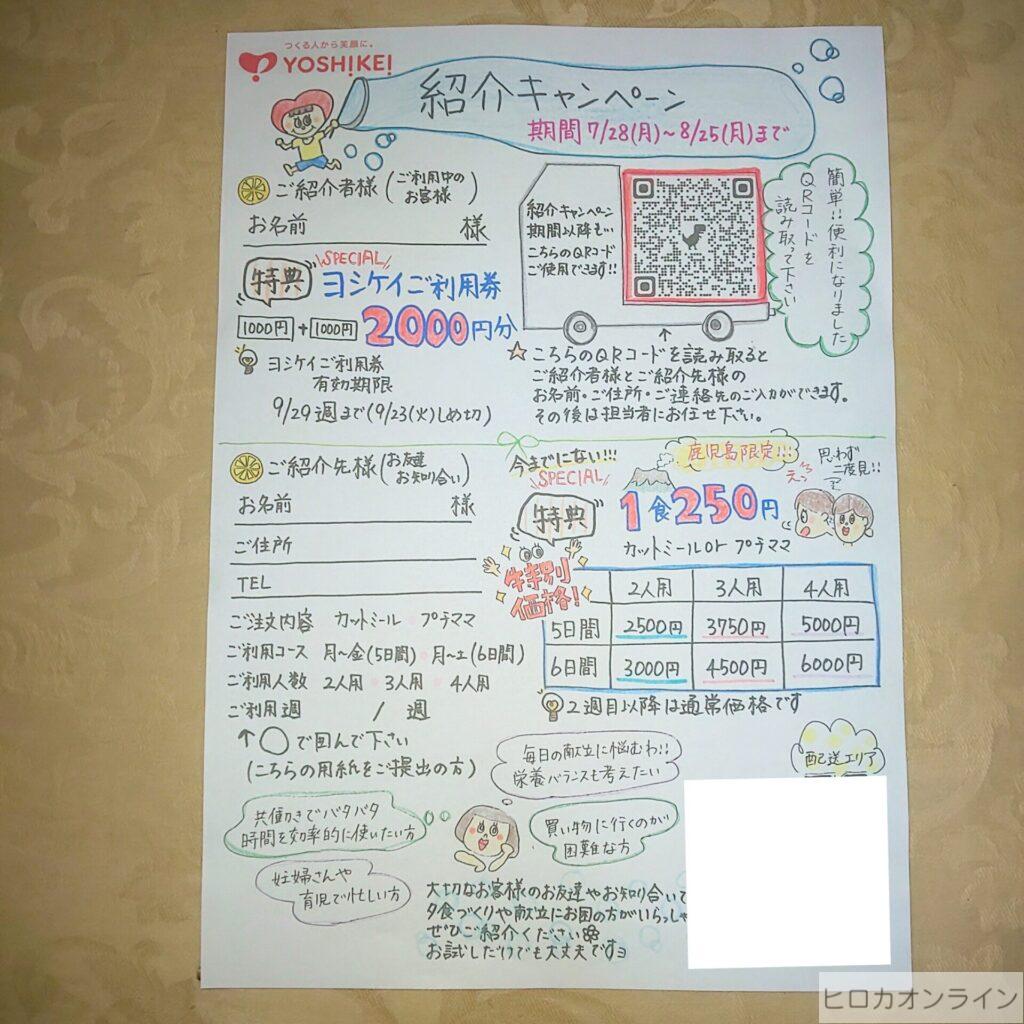 つくる人から笑顔に。
YOSH!KE!
紹介キャンペーン
期間 7/28(月)～8/25(月)まで
ご紹介者様(ご利用中のお客様)
お名前 様
特典
SPECIAL
ヨシケイご利用券
1000円+1000円 2000円分
ヨシケイご利用券
有効期限
9/29週まで(9/23(火)しめ切)
紹介キャンペーン
期間以降も
こちらのQRコード
ご使用できます!!
簡単!!便利になりました
QRコードを
読み取って下さい
↑
☆こちらのQRコードを読み取ると
ご紹介者様とご紹介先様の
お名前・ご住所・ご連絡先のご入力ができます。
その後は担当者にお任せ下さい。
ご紹介先様(お友達お知り合い)
お名前 様
ご住所
TEL
ご注文内容 カットミール・プチママ
ご利用コース 月～金(5日間)・月～土(6日間)
ご利用人数 2人用・3人用・4人用
ご利用週 / 週
↑○で囲んで下さい
(こちらの用紙をご提出の方)
今までにない!!!
SPECIAL
特典
鹿児島限定!!!
1食250円
えっ
思わず
二度見!!
カットミールor プチママ
特別
価格!
2人用 3人用 4人用
5日間 2500円 3750円 5000円
6日間 3000円 4500円 6000円
2週目以降は通常価格です
配送エリア
毎日の献立に悩むわ!!
栄養バランスも考えたい
共働きでバタバタ
時間を効率的に使いたい方
買い物に行くのが
困難な方
妊婦さんや
育児で忙しい方
大切なお客様のお友達やお知り合いで
夕食づくりや献立にお困の方がいらっしゃ
ぜひご紹介ください
お試しだけでも大丈夫です
ヒロカオンライン